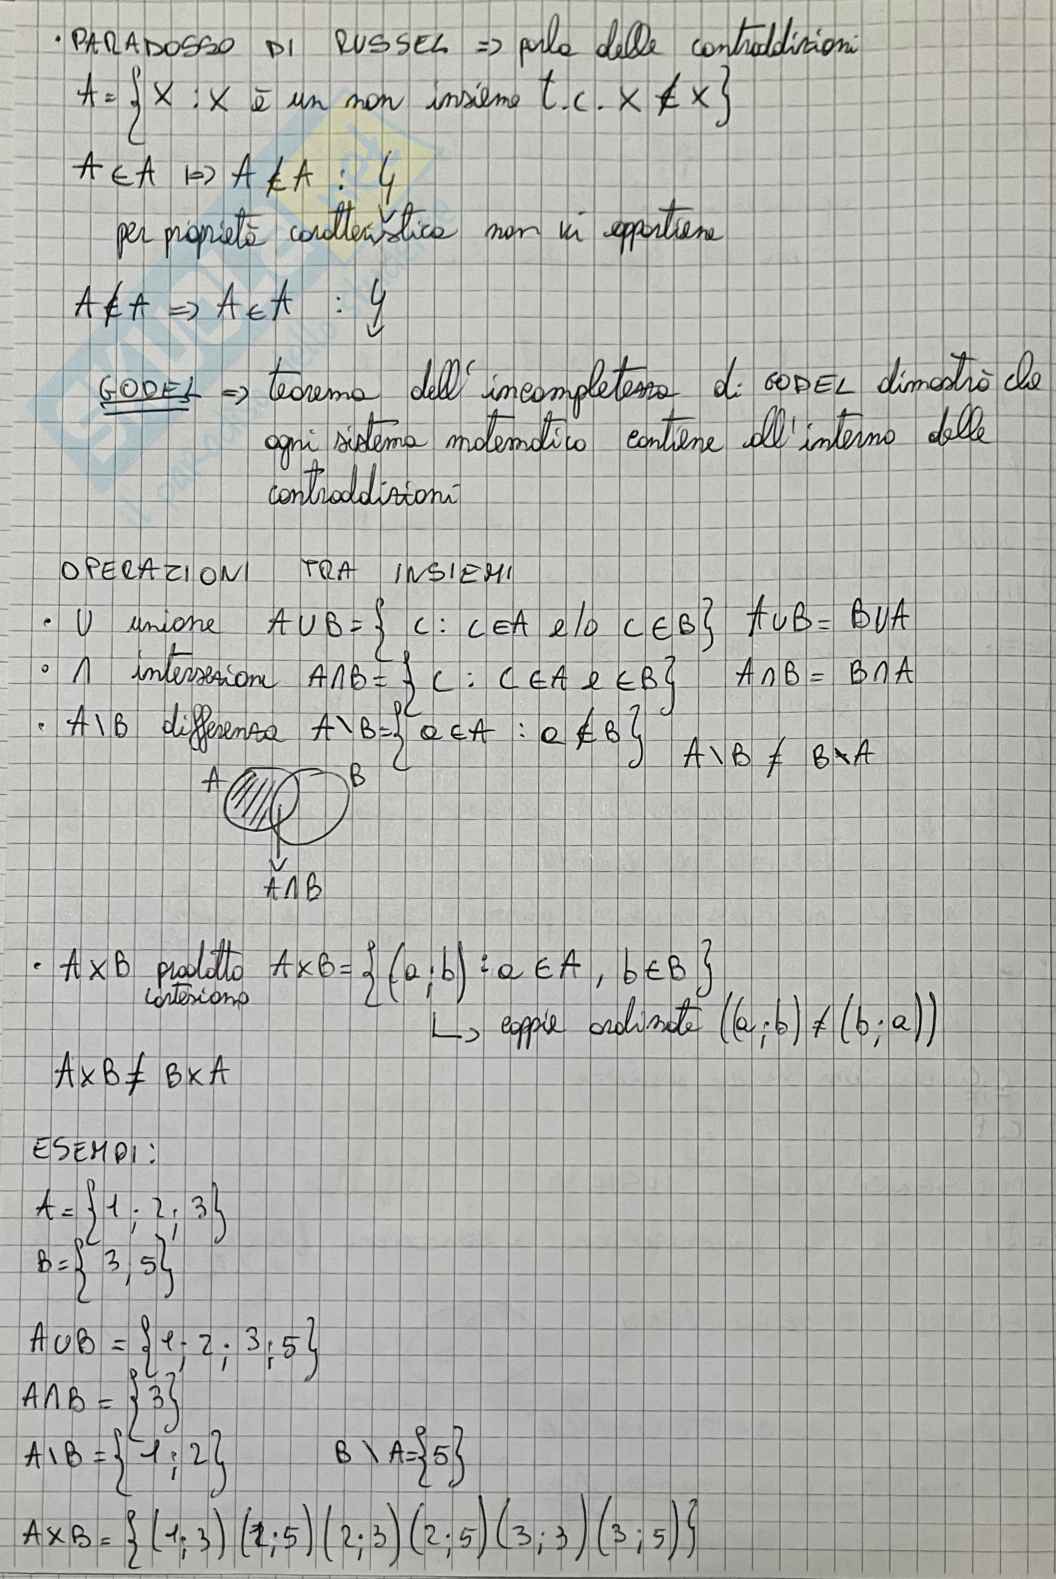 · PARADOSSO DI RUSSEL => parla delle contraddizioni
A = { X : X è un non insieme t.c. X ∉ X }
A ∈ A => A ∉ A : ↯
per proprietà caratteristica non vi appartiene
A ∉ A => A ∈ A : ↯
GODEL => teorema dell'incompletezza di GODEL dimostrò che
ogni sistema matematico contiene all'interno delle
contraddizioni
OPERAZIONI TRA INSIEMI
· ∪ unione A∪B = { c : c∈A e/o c∈B } A∪B = B∪A
· ∩ intersezione A∩B = { c : c∈A e ∈B } A∩B = B∩A
· A\B differenza A\B = { a∈A : a∉B } A\B ≠ B\A
A B
A∩B
· A×B prodotto A×B = { (a;b) : a∈A, b∈B }
cartesiano
↳ coppie ordinate ((a;b) ≠ (b;a))
A×B ≠ B×A
ESEMPI:
A = { 1 ; 2 ; 3 }
B = { 3, 5 }
A∪B = { 1 ; 2 ; 3 ; 5 }
A∩B = { 3 }
A\B = { 1 ; 2 } B \ A = { 5 }
A×B = { (1;3) (1;5) (2;3) (2;5) (3;3) (3;5) }